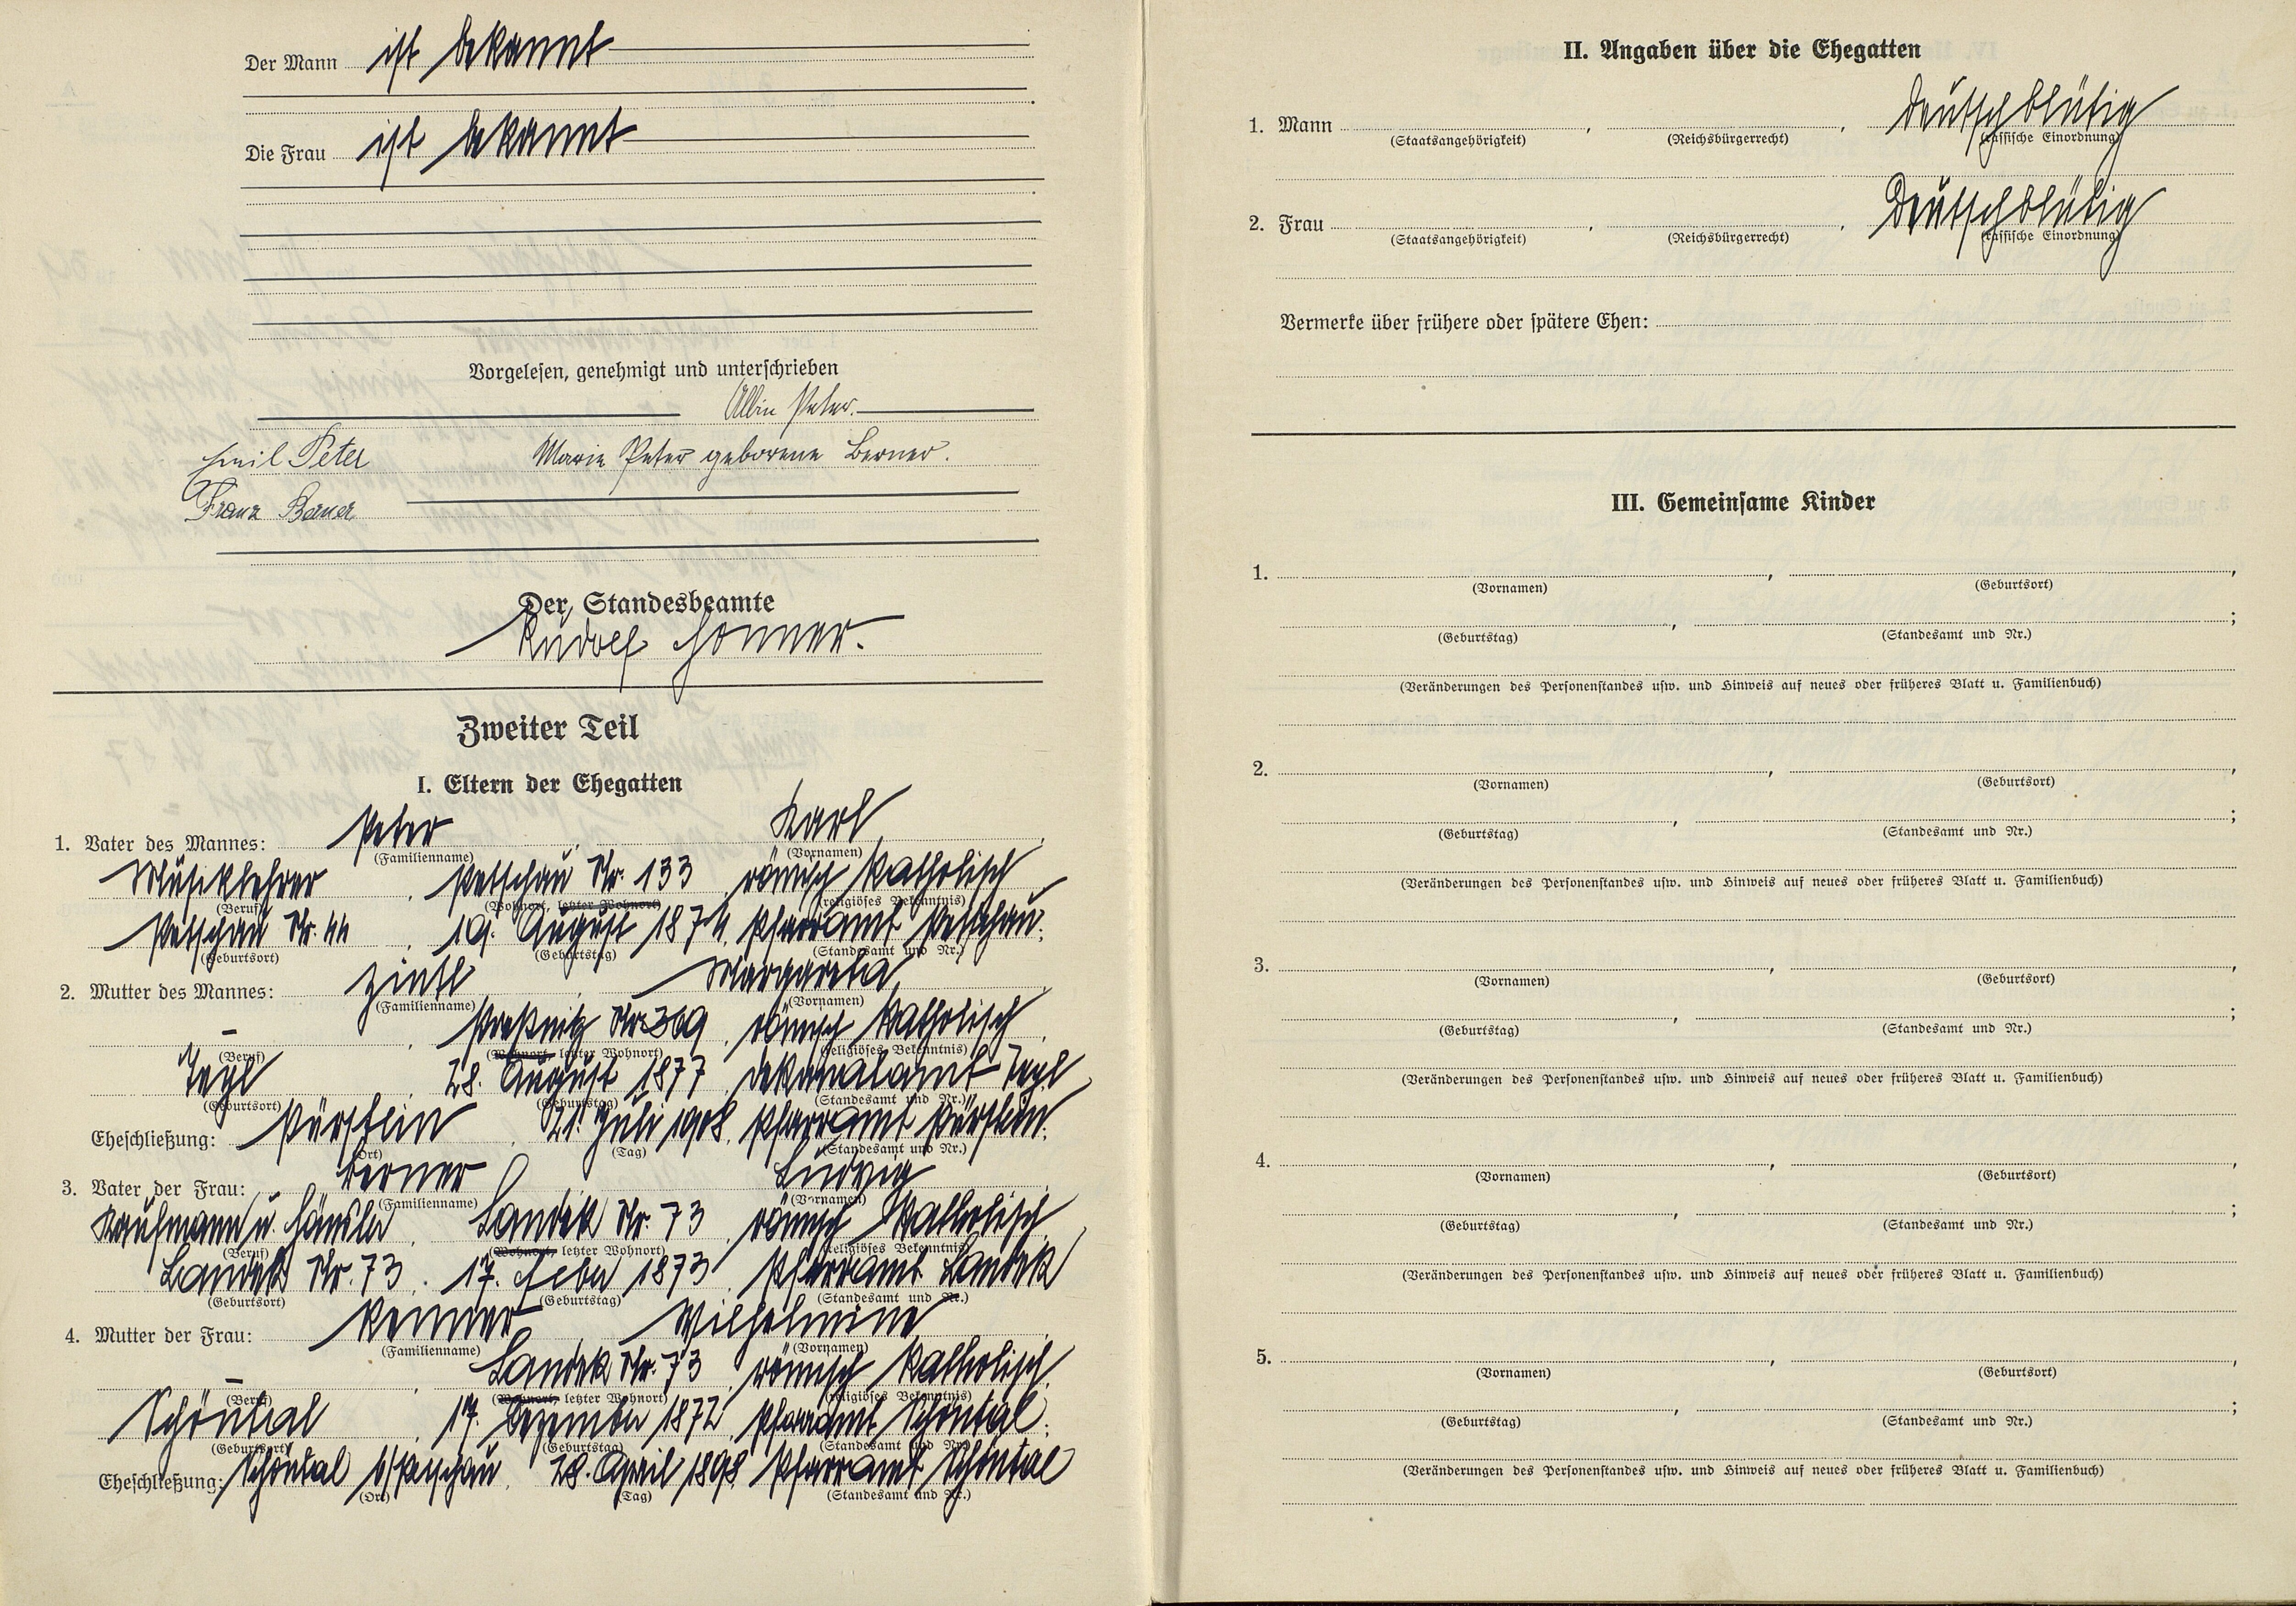 Der Mann ist bekannt
Die Frau ist bekannt
Vorgelesen, genehmigt und unterschrieben
Albin Peter.
Emil Peter Marie Peter geborene Berner.
Franz Bauer
Der Standesbeamte
Rudolf
Zweiter Teil
I. Eltern der Ehegatten
1. Vater des Mannes: Peter Karl
(Familienname) (Vornamen)
Musiklehrer, Petschau Nr. 133, römisch katholisch
(Beruf) (Wohnort, letzter Wohnort) (religiöses Bekenntnis)
Petschau Nr. 44, 19. August 1874, Pfarramt Petschau.
(Geburtsort) (Geburtstag) (Standesamt und Nr.)
2. Mutter des Mannes: Zintl, Margareta
(Familienname) (Vornamen)
–, Preßnitz Nr. 369, römisch katholisch
(Beruf) (Wohnort, letzter Wohnort) (religiöses Bekenntnis)
Tepl, 28. August 1877, Dekanalamt Tepl
(Geburtsort) (Geburtstag) (Standesamt und Nr.)
Eheschließung: Pürstein, 21. Juli 1908, Pfarramt Pürstein.
(Ort) (Tag) (Standesamt und Nr.)
3. Vater der Frau: Berner, Ludwig
(Familienname) (Vornamen)
Kaufmann u. Händler, Landek Nr. 73, römisch katholisch
(Beruf) (Wohnort, letzter Wohnort) (religiöses Bekenntnis)
Landek Nr. 73, 17. Feber 1873, Pfarramt Landek
(Geburtsort) (Geburtstag) (Standesamt und Nr.)
4. Mutter der Frau: Renner, Wilhelmine
(Familienname) (Vornamen)
–, Landek Nr. 73, römisch katholisch.
(Beruf) (Wohnort, letzter Wohnort) (religiöses Bekenntnis)
Schöntal, 17. Dezember 1872, Pfarramt Schöntal.
(Geburtsort) (Geburtstag) (Standesamt und Nr.)
Eheschließung: Schöntal b/Petschau, 28. April 1898, Pfarramt Schöntal
(Ort) (Tag) (Standesamt und Nr.)
II. Angaben über die Ehegatten
1. Mann , , deutschblütig
(Staatsangehörigkeit) (Reichsbürgerrecht) (rassische Einordnung)
2. Frau , , deutschblütig
(Staatsangehörigkeit) (Reichsbürgerrecht) (rassische Einordnung)
Vermerke über frühere oder spätere Ehen:
III. Gemeinsame Kinder
1. , ,
(Vornamen) (Geburtsort)
, ;
(Geburtstag) (Standesamt und Nr.)
(Veränderungen des Personenstandes usw. und Hinweis auf neues oder früheres Blatt u. Familienbuch)
2. , ,
(Vornamen) (Geburtsort)
, ;
(Geburtstag) (Standesamt und Nr.)
(Veränderungen des Personenstandes usw. und Hinweis auf neues oder früheres Blatt u. Familienbuch)
3. , ,
(Vornamen) (Geburtsort)
, ;
(Geburtstag) (Standesamt und Nr.)
(Veränderungen des Personenstandes usw. und Hinweis auf neues oder früheres Blatt u. Familienbuch)
4. , ,
(Vornamen) (Geburtsort)
, ;
(Geburtstag) (Standesamt und Nr.)
(Veränderungen des Personenstandes usw. und Hinweis auf neues oder früheres Blatt u. Familienbuch)
5. , ,
(Vornamen) (Geburtsort)
, ;
(Geburtstag) (Standesamt und Nr.)
(Veränderungen des Personenstandes usw. und Hinweis auf neues oder früheres Blatt u. Familienbuch)